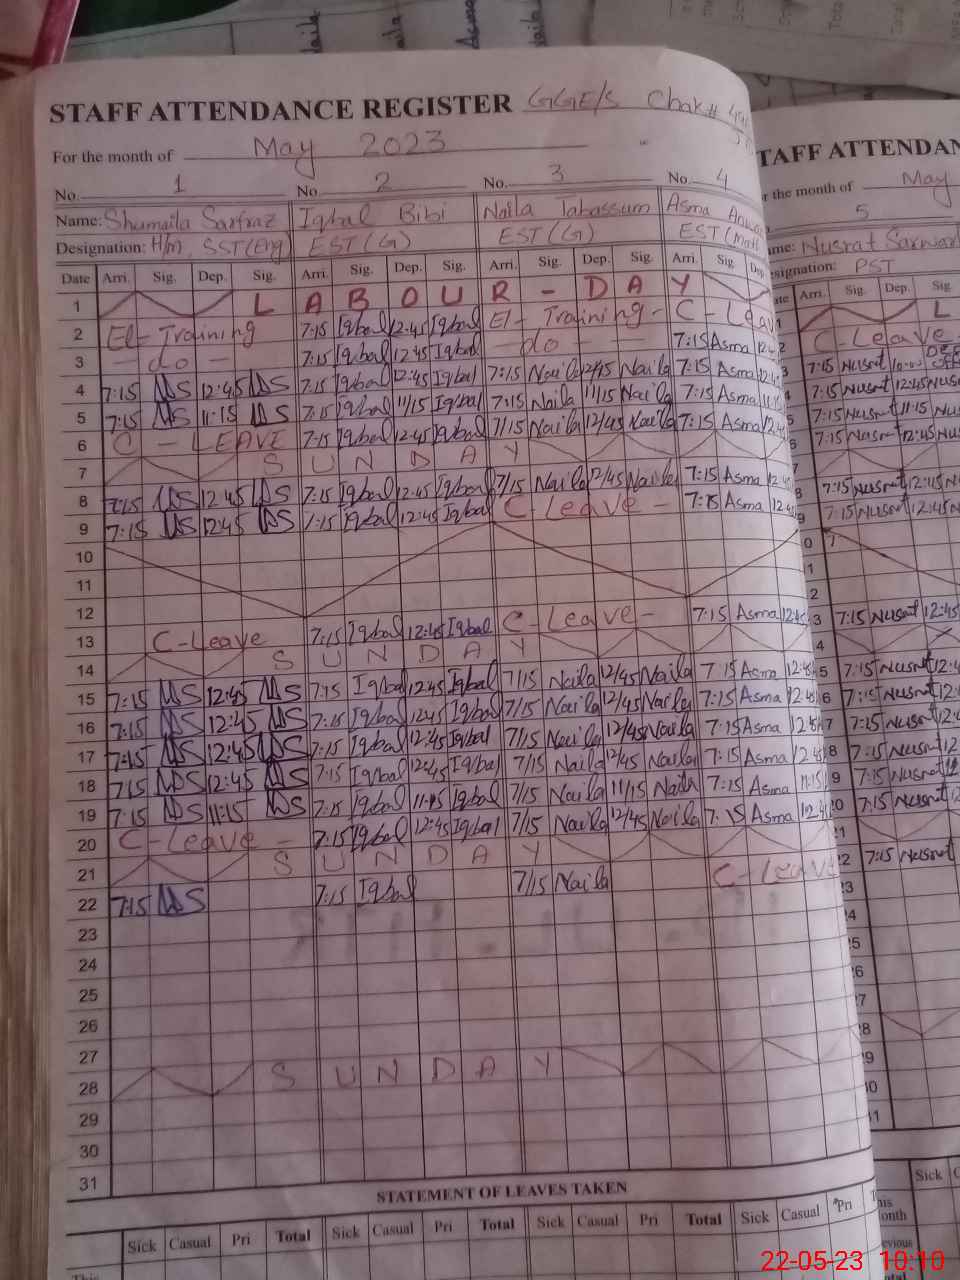 STAFF ATTENDANCE REGISTER GGE/S Chak #
For the month of May 2023
No. 1 No. 2 No. 3 No. 4
Name: Shumaila Sarfraz Iqbal Bibi Naila Tabassum Asma
Designation: H/m, SST(Eng) EST(G) EST(G) EST(Math
Date Arri. Sig. Dep. Sig. Arri. Sig. Dep. Sig. Arri. Sig. Dep. Sig. Arri. Sig Dep.
1 LABOUR-DAY
2 El-Training 7:15 Iqbal 12:45 Iqbal El-Training- C-Leav
3 -do- 7:15 Iqbal 12:45 Iqbal -do- 7:15 Asma 12:4
4 7:15 12:45 7:15 Iqbal 12:45 Iqbal 7:15 Naila 12/45 Naila 7:15 Asma 12:45
5 7:15 11:15 7:15 Iqbal 11/15 Iqbal 7:15 Naila 11/15 Naila 7:15 Asma 11:15
6 C-LEAVE 7:15 Iqbal 12:45 Iqbal 7/15 Naila 12/45 Naila 7:15 Asma 12:45
7 SUNDAY
8 7:15 12:45 7:15 Iqbal 12:45 Iqbal 7/15 Naila 12/45 Naila 7:15 Asma 12:45
9 7:15 12:45 7:15 Iqbal 12:45 Iqbal C-Leave- 7:15 Asma 12:45
10
11
12
13 C-Leave 7:15 Iqbal 12:45 Iqbal C-Leave- 7:15 Asma 12:45
14 SUNDAY
15 7:15 12:45 7:15 Iqbal 12:45 Iqbal 7/15 Naila 12/45 Naila 7:15 Asma 12:45
16 7:15 12:45 7:15 Iqbal 12:45 Iqbal 7/15 Naila 12/45 Naila 7:15 Asma 12:45
17 7:15 12:45 7:15 Iqbal 12:45 Iqbal 7/15 Naila 12/45 Naila 7:15 Asma 12:45
18 7:15 12:45 7:15 Iqbal 12:45 Iqbal 7/15 Naila 12/45 Naila 7:15 Asma 12:45
19 7:15 11:15 7:15 Iqbal 11:15 Iqbal 7/15 Naila 11/15 Naila 7:15 Asma 11:15
20 C-Leave- 7:15 Iqbal 12:45 Iqbal 7/15 Naila 12/45 Naila 7:15 Asma 12:45
21 SUNDAY
22 7:15 7:15 Iqbal 7/15 Naila C-Leave
23
24
25
26
27
28 SUNDAY
29
30
31
STATEMENT OF LEAVES TAKEN
Sick Casual Pri Total Sick Casual Pri Total Sick Casual Pri Total Sick Casual Pri
TAFF ATTENDAN
r the month of May
5
me: Nusrat Sarwar
signation: PST
ate Arri. Sig. Dep. Sig.
L
C-Leave
7:15 Nusrat
7:15 Nusrat 12:45 Nus
7:15 Nusrat 11:15 Nu
7:15 Nusrat 12:45 N
7:15 Nusrat 12:45 N
7:15 Nusrat 12:45 N
7:15 Nusrat 12:45
7:15 Nusrat 12:4
7:15 Nusrat 12:
7:15 Nusrat 12:
7:15 Nusrat 12
7:15 Nusrat
7:15 Nusrat
7:15 Nusrat
Sick
22-05-23 10:10